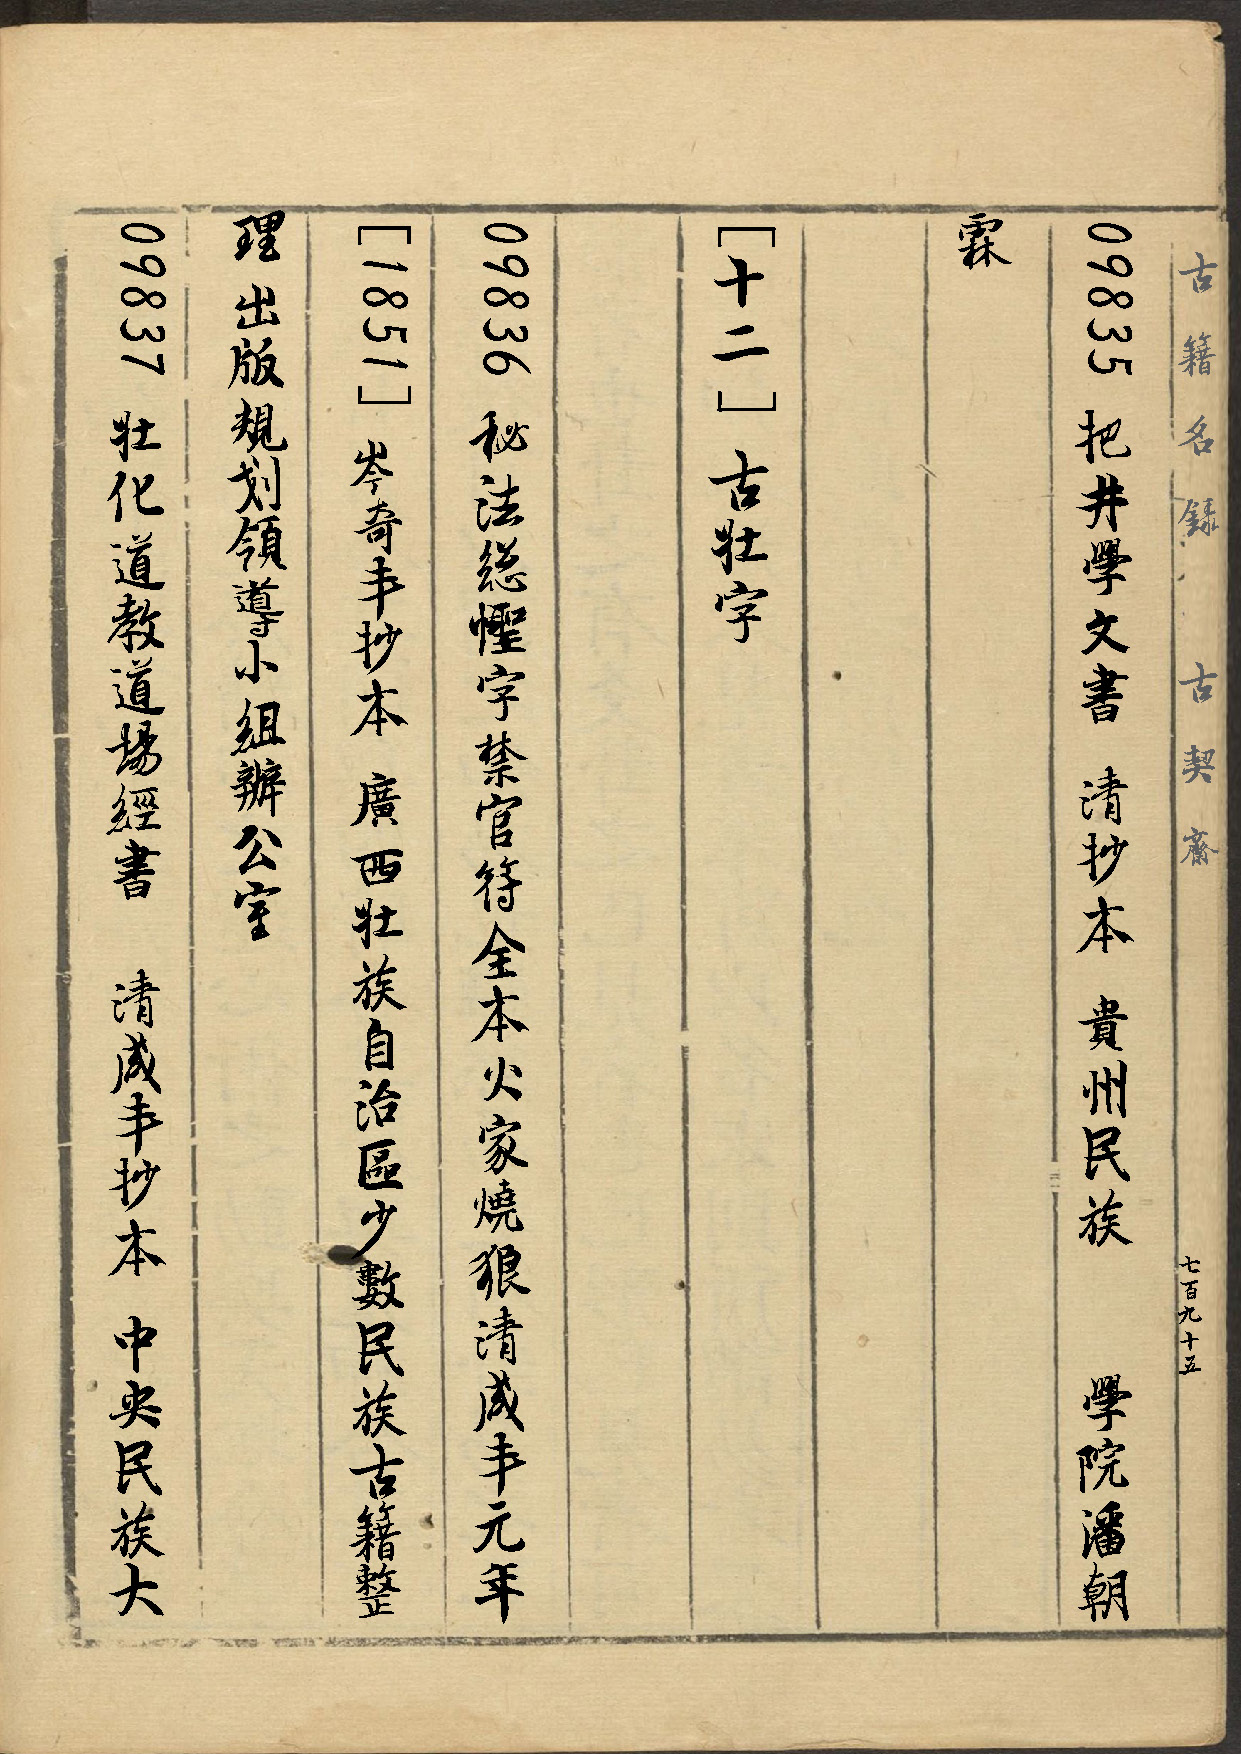 古籍名錄 古契齋 七百九十五
09835 把井學文書 清抄本 貴州民族 學院潘朝
霖
[十二] 古壯字
09836 秘法総憽字禁官符全本火家燒狼清咸丰元年
[1851] 岑奇丰抄本 廣西壯族自治區少數民族古籍整
理 出版規划領導小組辦公室
09837 壯化道教道場經書 清咸丰抄本 中央民族大